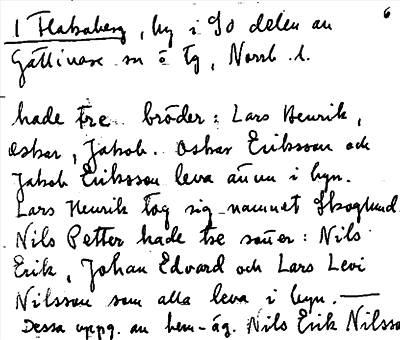 6
I Flakaberg, by i SO delen av
Gällivare sn o tg, Norrb. l.
hade tre bröder: Lars Henrik,
Oskar, Jakob. Oskar Eriksson och
Jakob Eriksson leva ännu i byn.
Lars Henrik tog sig namnet Skoglund.
Nils Petter hade tre söner: Nils
Erik, Johan Edvard och Lars Levi
Nilsson som alla leva i byn. —
Dessa uppg. av hem-äg. Nils Erik Nilsso